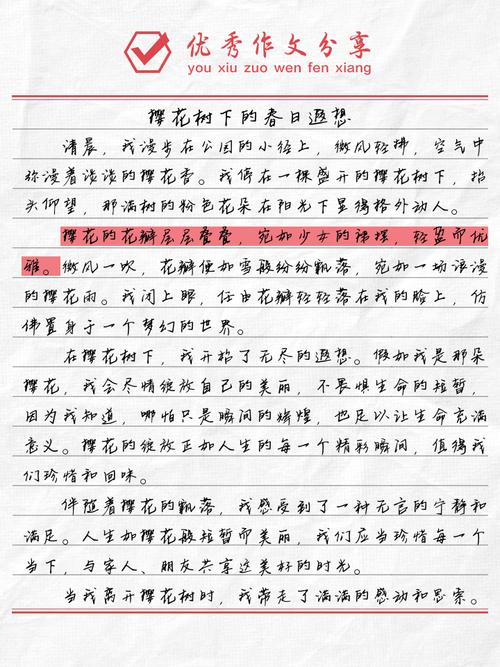 优秀作文分享
you xiu zuo wen fen xiang
樱花树下的春日遐想
清晨，我漫步在公园的小径上，微风轻拂，空气中
弥漫着淡淡的樱花香。我停在一棵盛开的樱花树下，抬
头仰望，那满树的粉色花朵在阳光下显得格外动人。
樱花的花瓣层层叠叠，宛如少女的裙摆，轻盈而优
雅。微风一吹，花瓣便如雪般纷纷飘落，宛如一场浪漫
的樱花雨。我闭上眼，任由花瓣轻轻落在我的脸上，仿
佛置身于一个梦幻的世界。
在樱花树下，我开始了无尽的遐想。假如我是那朵
樱花，我会尽情绽放自己的美丽，不畏惧生命的短暂，
因为我知道，哪怕只是瞬间的辉煌，也足以让生命充满
意义。樱花的绽放正如人生的每一个精彩瞬间，值得我
们珍惜和回味。
伴随着樱花的飘落，我感受到了一种无言的宁静和
满足。人生如樱花般短暂而美丽，我们应当珍惜每一个
当下，与家人、朋友共享这美好的时光。
当我离开樱花树时，我带走了满满的感动和思索。